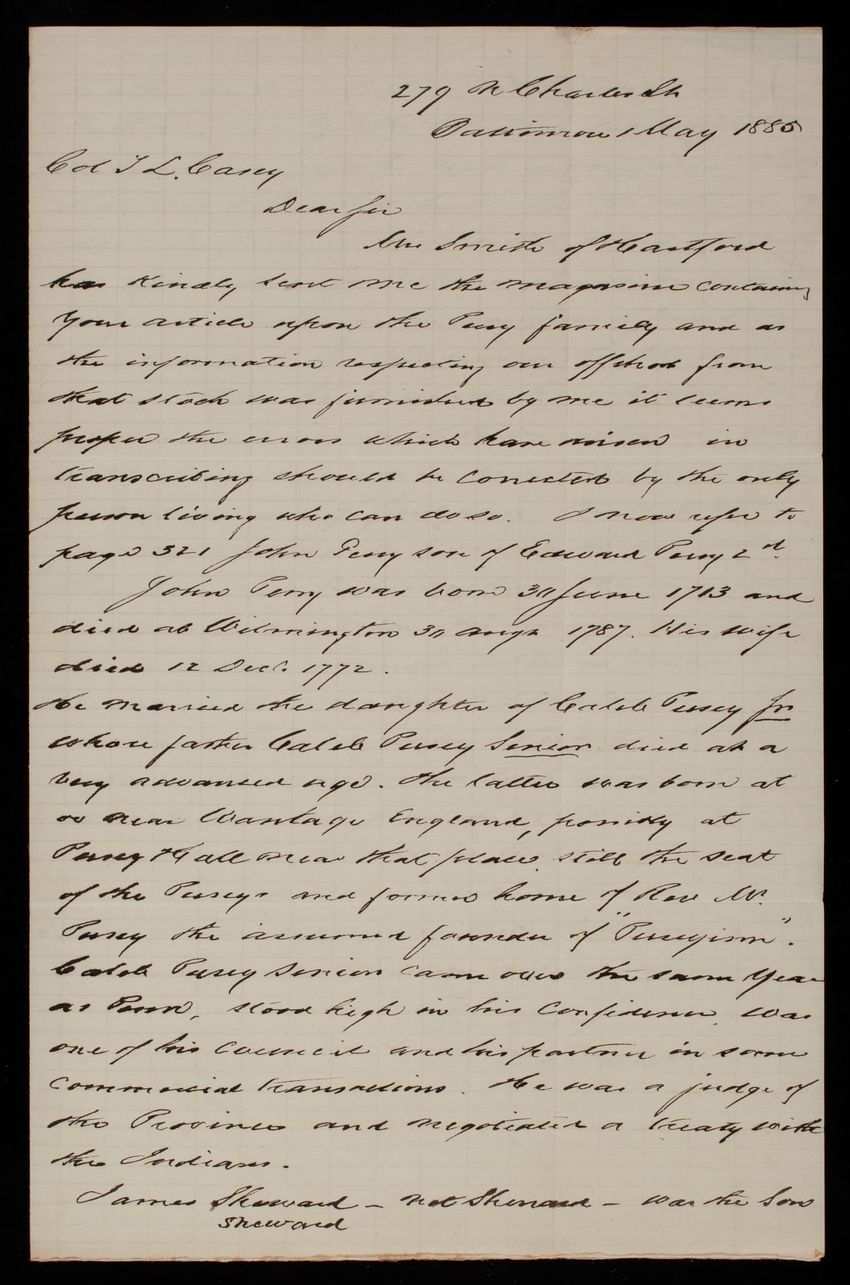 279 N Charles St
Baltimore 1 May 1885
Col T L. Casey
Dear Sir
Mr Smith of Hartford
has kindly sent me the magazine containing
your article upon the Perry family and as
the information respecting our offshoot from
that stock was furnished by me it seems
proper the errors which have arisen in
transcribing should be corrected by the only
person living who can do so. I now refer to
page 321 John Perry son of Edward Perry 2d.
John Perry was born 30 June 1713 and
died at Wilmington 30 Augt 1787. His wife
died 12 Decr. 1772.
He married the daughter of Caleb Pusey Jr
whose father Caleb Pusey Senior died at a
very advanced age. The latter was born at
or near Wantage England, possibly at
Pusey Hall near that place, still the seat
of the Puseys and former home of Rev Mr.
Pusey the assumed founder of "Puseyism".
Caleb Pusey Senior came over the same year
as Penn, stood high in his confidence, was
one of his council and his partner in some
commercial transactions. He was a judge of
the Province and negotiated a treaty with
the Indians.
James Sheward - not Shenard - was the son
Sheward